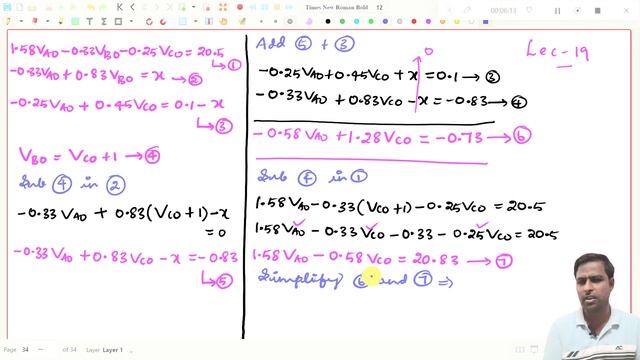 Times New Roman Bold 12
00:06:13
1.58VAO-0.33VBO-0.25VCO=20.5
→①
-0.33VAO+0.83VBO = x →②
-0.25VAO+0.45VCO=0.1-x
→③
VBO = VCO+1 →④
Sub ④ in ②
-0.33VAO + 0.83(VCO+1)-x
=0
-0.33VAO+0.83VCO-x=-0.83
→⑤
Add ⑤ + ③
0
Lec-19
-0.25VAO+0.45VCO+x=0.1→③
-0.33VAO+0.83VCO-x=-0.83→④
-0.58VAO+1.28VCO=-0.73→⑥
Sub ④ in ①
1.58VAO-0.33(VCO+1)-0.25VCO=20.5
1.58VAO-0.33VCO-0.33-0.25VCO=20.5
1.58VAO-0.58VCO=20.83→⑦
Simplify ⑥ and ⑦ ⇒
Page 34 of 34 Layer Layer 1